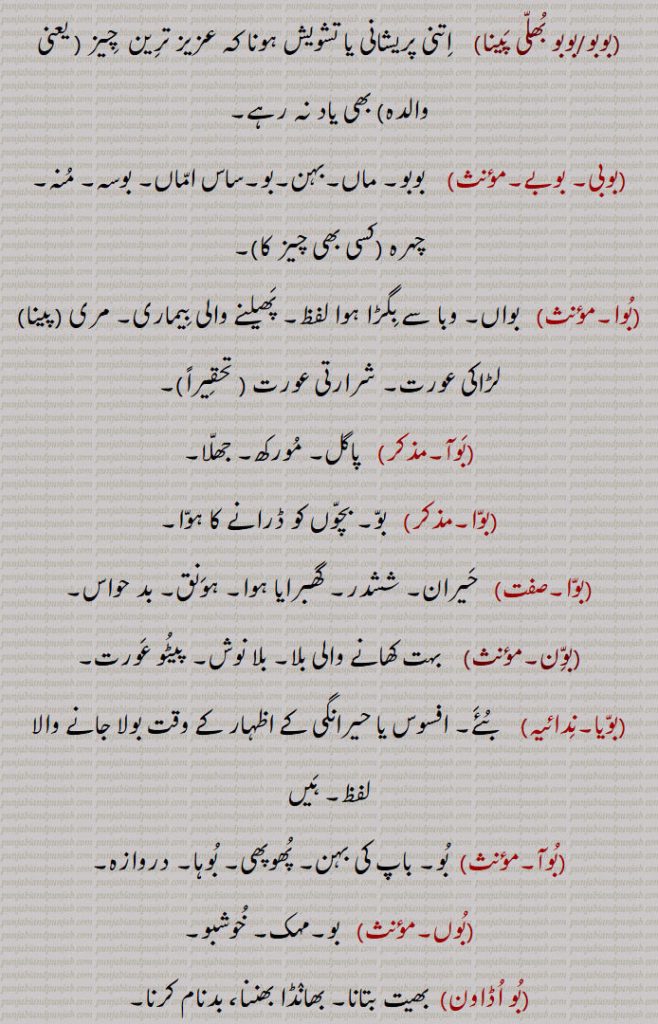 (بوبو/بوبو بُھلّی پَینا) اِتنی پریشانی یا تشویش ہونا کہ عزیز ترِین چِیز (یعنی
والدہ) بھی یاد نہ رہے۔
(بوبی۔ بوبے۔مؤنث) بوبو۔ ماں۔بہن۔بو۔ساس امّاں۔ بوسہ۔ مُنہ۔
چہرہ (کسی بھی چیز کا)۔
(بُوا۔مؤنث) بواں۔ وبا سے بِگڑا ہوا لفظ۔ پَھیلنے والی بِیماری۔ مری (پینا)
لڑاکی عورت۔ شرارتی عورت (تحقِیراً)۔
(بَوآ۔مذکر) پاگل۔ مُورکھ۔ جھلّا۔
(بوّا۔مذکر) بوّ۔ بچّوں کو ڈرانے کا ہوّا۔
(بوّا۔صفت) حَیران۔ ششدر۔ گھبرایا ہوا۔ ہوَنق۔ بد حواس۔
(بوِّن۔مؤنث) بہت کھانے والی بلا۔ بلا نوش۔ پیٹُو عَورت۔
(بوّیا۔نِدائیہ) بُئَے۔ افسوس یا حیرانگی کے اظہار کے وقت بولا جانے والا
لفظ۔ ہَیں
(بُوآ۔مؤنث) بُو۔ باپ کی بہن۔ پُھوپھی۔ بُوہا۔ دروازہ۔
(بُوں۔مؤنث) بو۔مہک۔ خُوشبو۔
(بُو اُڈاون) بھیت بتانا۔ بھانْڈا بھننا، بدنام کرنا۔